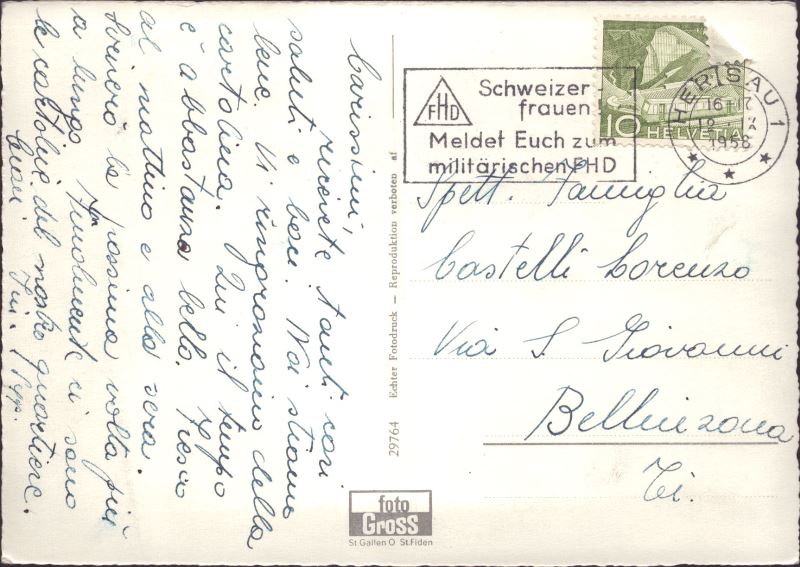 Carissimi,
ricevete tanti cari
saluti e baci. Noi stiamo
bene. Vi ringraziamo della
cartolina. Qui il tempo
è abbastanza bello. Fresco
al mattino e alla sera.
Scriverò la prossima volta più
a lungo. Finalmente ci sono
le cartoline del nostro quartiere.
Ciao
29764 Echter Fotodruck — Reproduktion verboten af
foto
Gross
St Gallen O St.Fiden
FHD
Schweizer
frauen
Meldet Euch zum
militärischen FHD
10 HELVETIA
HERISAU 1
16-17
1958
Spett. Famiglia
Castelli Lorenzo
Via S. Giovanni
Bellinzona
Ti.